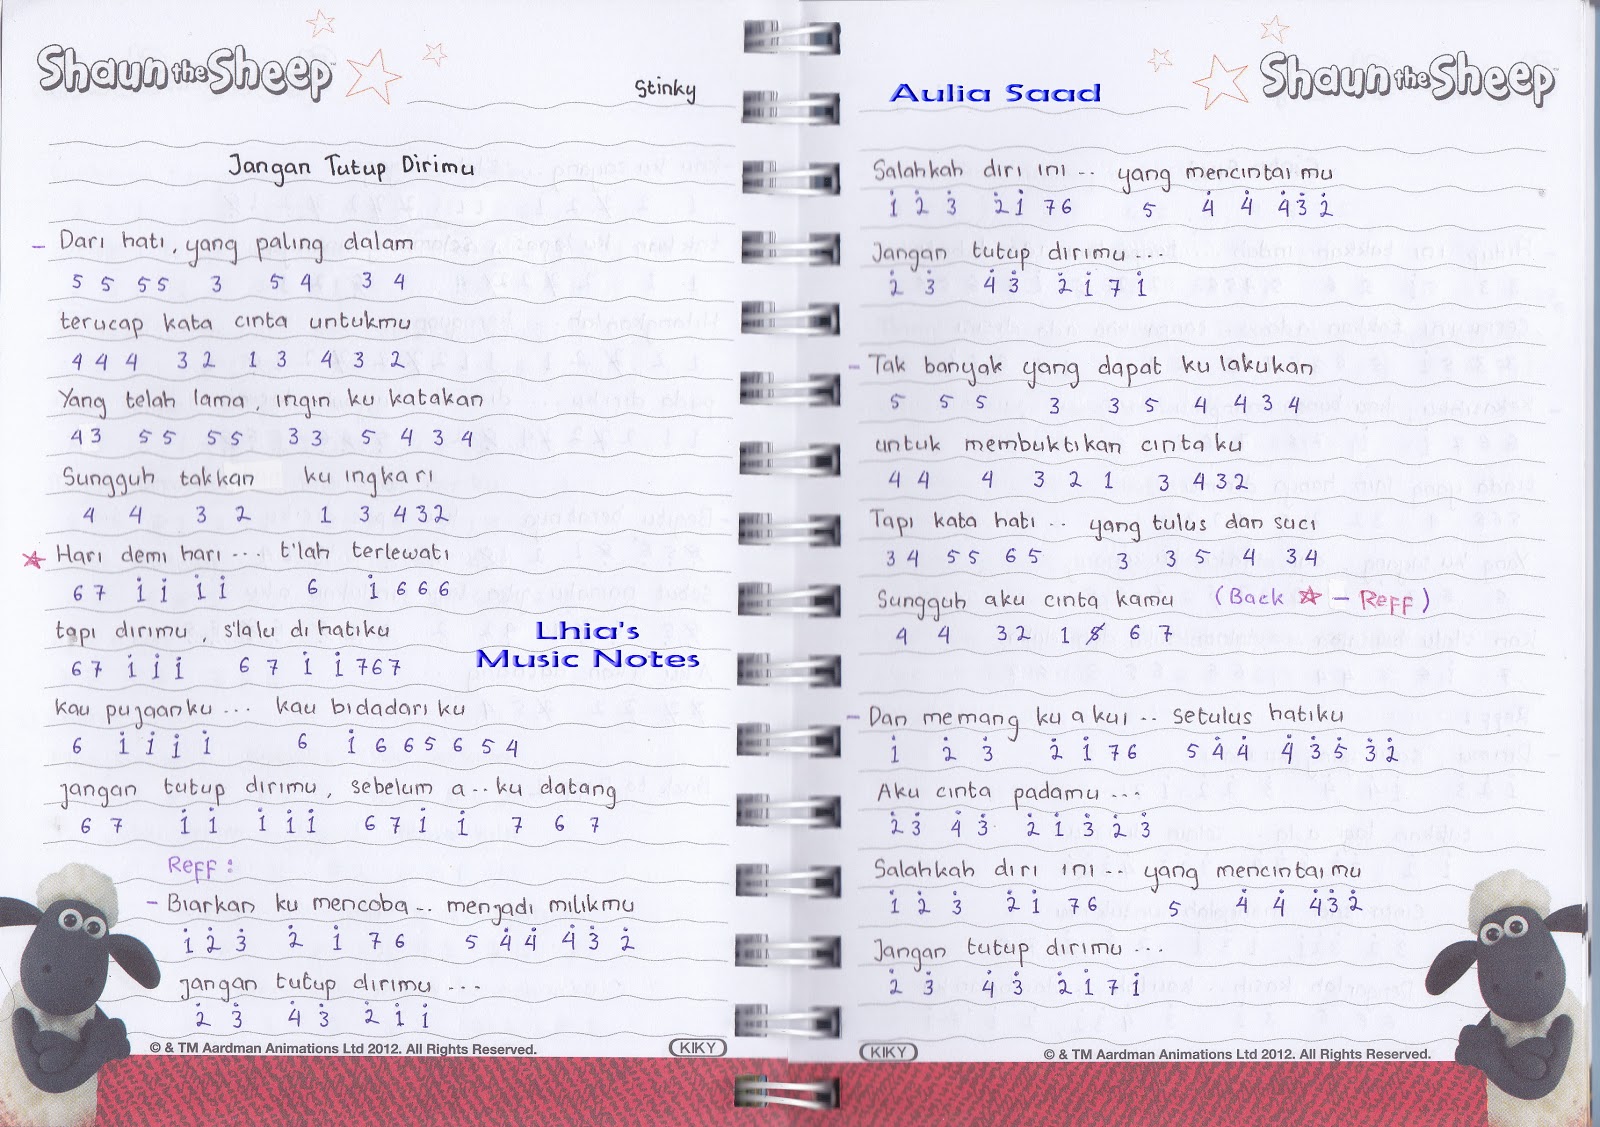 Shaun the Sheep™
Stinky
Jangan Tutup Dirimu
- Dari hati, yang paling dalam
5 5 5 5 3 5 4 3 4
terucap kata cinta untukmu
4 4 4 3 2 1 3 4 3 2
Yang telah lama, ingin ku katakan
4 3 5 5 5 5 3 3 5 4 3 4
Sungguh takkan ku ingkari
4 4 3 2 1 3 4 3 2
☆ Hari demi hari ... t'lah terlewati
6 7 1̇ 1̇ 1̇ 1̇ 6 1̇ 6 6 6
tapi dirimu, s'lalu di hatiku
6 7 1̇ 1̇ 1̇ 6 7 1̇ 1̇ 7 6 7
Lhia's
Music Notes
kau pujaanku ... kau bidadari ku
6 1̇ 1̇ 1̇ 1̇ 6 1̇ 6 6 5 6 5 4
jangan tutup dirimu, sebelum a..ku datang
6 7 1̇ 1̇ 1̇ 1̇ 1̇ 6 7 1̇ 1̇ 7 6 7
Reff :
- Biarkan ku mencoba.. menjadi milikmu
1̇ 2̇ 3̇ 2̇ 1̇ 7 6 5 4̇ 4̇ 4̇ 3̇ 2̇
jangan tutup dirimu ...
2̇ 3̇ 4̇ 3̇ 2̇ 1̇ 1̇
© & TM Aardman Animations Ltd 2012. All Rights Reserved.
KIKY
Aulia Saad
Shaun the Sheep™
Salahkah diri ini .. yang mencintaimu
1̇ 2̇ 3̇ 2̇ 1̇ 7 6 5 4̇ 4̇ 4̇ 3̇ 2̇
Jangan tutup dirimu ...
2̇ 3̇ 4̇ 3̇ 2̇ 1̇ 7 1̇
- Tak banyak yang dapat ku lakukan
5 5 5 3 3 5 4 4 3 4
untuk membuktikan cintaku
4 4 4 3 2 1 3 4 3 2
Tapi kata hati .. yang tulus dan suci
3 4 5 5 6 5 3 3 5 4 3 4
Sungguh aku cinta kamu (Back ☆ - Reff)
4 4 3 2 1 6 7
- Dan memang ku akui .. setulus hatiku
1̇ 2̇ 3̇ 2̇ 1̇ 7 6 5 4̇ 4̇ 4̇ 3̇ 5̇ 3̇ 2̇
Aku cinta padamu ...
2̇ 3̇ 4̇ 3̇ 2̇ 1̇ 3̇ 2̇ 3̇
Salahkah diri ini .. yang mencintaimu
1̇ 2̇ 3̇ 2̇ 1̇ 7 6 5 4̇ 4̇ 4̇ 3̇ 2̇
Jangan tutup dirimu ...
2̇ 3̇ 4̇ 3̇ 2̇ 1̇ 7 1̇
KIKY
© & TM Aardman Animations Ltd 2012. All Rights Reserved.